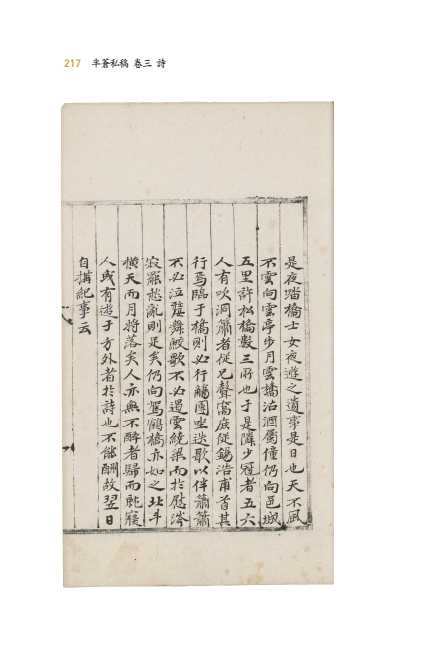 217 半蒼私稿 卷三 詩
是夜踏橋士女夜遊之遺事是日也天不風
不雲向雲亭步月雲橋沽酒屬僮仍向邑城
五里許松橋數三所也于是隊少冠者五六
人有吹洞簫者從兄聲窩庭從錫浩甫首其
行焉臨于橋則必行觴團坐迭歌以伴簫簫
不必泣嫠舞鮫歌不必遏雲繞梁而於慰滯
寂罷愁亂則足矣仍向駕鶴橋亦如之北斗
橫天而月將落矣人亦無不醉者歸而卽寢
人或有遊于方外者於詩也不能酬故翌日
自搆紀事云